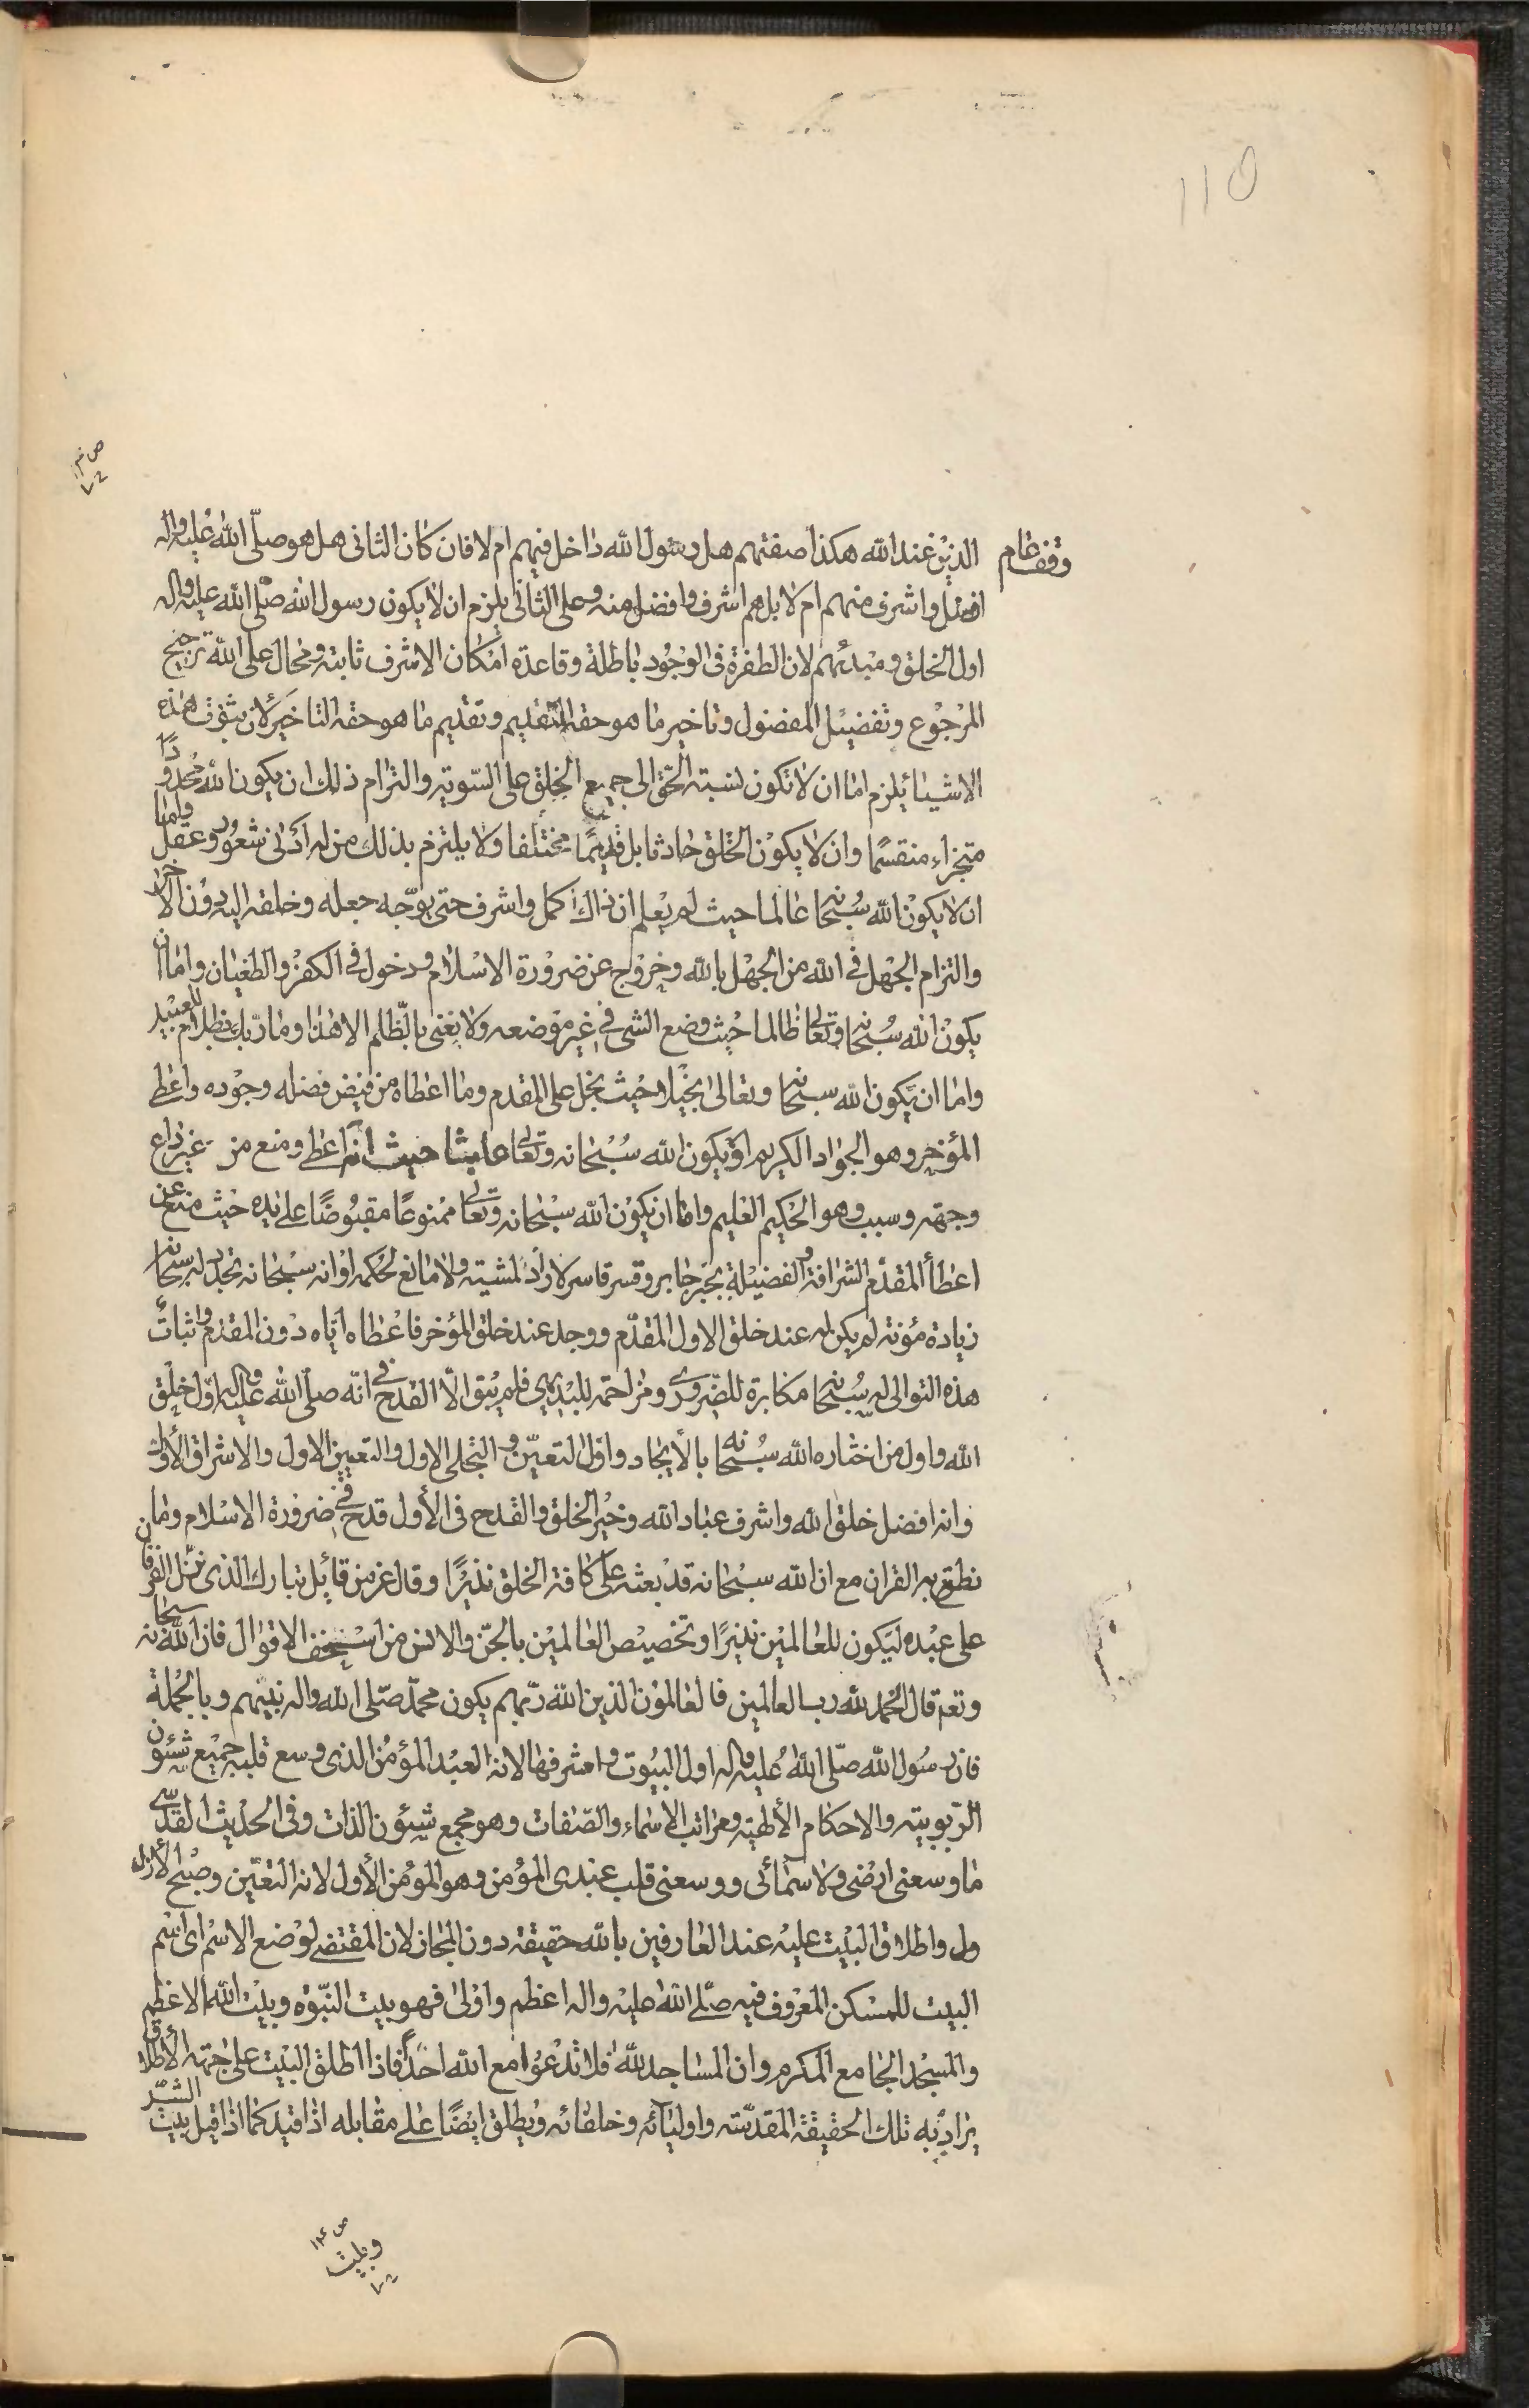 115
وقف عام
الذين عند الله هكذا صفتهم هل رسول الله داخل فيهم ام لا فان كان الثانى هل هو صلّى الله عليه واله
افضل واشرف منهم ام لا بل هم اشرف وافضل منه وعلى الثانى يلزم ان لا يكون رسول الله صلّى الله عليه واله
اول الخلق ومبدئهم لان الطفرة فى الوجود باطلة وقاعدة امكان الاشرف ثابتة ومحال على الله ترجيح
المرجوع وتفضيل المفضول وتاخير ما هو حقه التقديم وتقديم ما هو حقه التاخير لان بثبوت هذه
الاشياء يلزم اما ان لا تكون نسبته الحق الى جميع الخلق على السّوية والتزام ذلك ان يكون الله محدودًا
متجزاء منقسمًا وان لا يكون الخلق حادثا بل قديمًا مختلفا ولا يلتزم بذلك من له ادنى شعور وعقل واما
ان لا يكون الله سبحانه عالما حيث لم يعلم ان ذاك اكمل واشرف حتى يوجّه جعله وخلقه اليه دون الاخر
والتزام الجهل فى الله من الجهل بالله وخروج عن ضرورة الاسلام ودخول فى الكفر والطغيان واما ان
يكون الله سبحانه وتعالى ظالما حيث وضع الشى فى غير موضعه ولا نعنى بالظلم الا هذا وما ربّك بظلام للعبيد
واما ان يكون الله سبحانه وتعالى بخيلا حيث بخل على المقدم وما اعطاه من فيض فضله وجوده واعطى
المؤخر وهو الجواد الكريم او يكون الله سبحانه وتعالى عابثا حيث انه اعطى ومنع من غير داع
وجهة وسبب وهو الحكيم العليم واما ان يكون الله سبحانه وتعالى ممنوعًا مقبوضًا على يده حيث منع عن
اعطاء المقدّم الشرافة والفضيلة بجبر جابر وقسر قاسر لا رادّ لمشيته ولا مانع لحكمه او انه سبحانه تجدد له سبحانه
زيادة مؤنة لم يكن له عند خلق الاول المقدّم ووجد عند خلق المؤخر فاعطاه اياه دون المقدم واثبات
هذه التوالى له سبحانه مكابرة للضّرورى ومزاحمة للبديهى فلم يبق الّا القدح فى انّه صلّى الله عليه واله اول خلق
الله واول من اختاره الله سبحانه بالايجاد واول التعيّن والتجلى الاول والتعين الاول والاشراق الاول
وانه افضل خلق الله واشرف عباد الله وخير الخلق والقدح فى الأول قدح فى ضرورة الاسلام وما
نطق به القران مع ان الله سبحانه قد بعثه على كافة الخلق نذيرًا وقال عز من قائل تبارك الذى نزّل الفرقان
على عبده ليكون للعالمين نذيرًا وتخصيص العالمين بالجنّ والانس من اسخف الاقوال فان الله سبحانه
وتعم قال الحمد لله رب العالمين فالعالمون الذين الله ربّهم يكون محمّد صلّى الله واله نبيّهم وبالجملة
فان رسول الله صلّى الله عليه واله اول البيوت واشرفها لانه العبد المؤمن الذى وسع قلبه جميع شئون
الرّبوبيّه والاحكام الألهيّة ومراتب الأسماء والصّفات وهو مجمع شئون الذات وفى الحديث القدسّى
ما وسعنى ارضى ولا سمائى ووسعنى قلب عبدى المؤمن وهو المؤمن الأول لانه التعيّن وصبح الأزل
ول واطلاق البيت عليه عند العارفين بالله حقيقة دون المجاز لان المقتضى لوضع الاسم اى اسم
البيت للمسكن المعروف فيه صلّى الله عليه واله اعظم واولى فهو بيت النبّوة وبيت الله الاعظم
والمسجد الجامع المكرم وان المساجد لله فلا تدعوا مع الله احدًا فاذا اطلق البيت على جهة الأطلاق
يراد به تلك الحقيقة المقدّسة واوليائه وخلفائه ويطلق ايضًا على مقابله اذا قيد كما اذا قيل بيت الشّر
وبيت